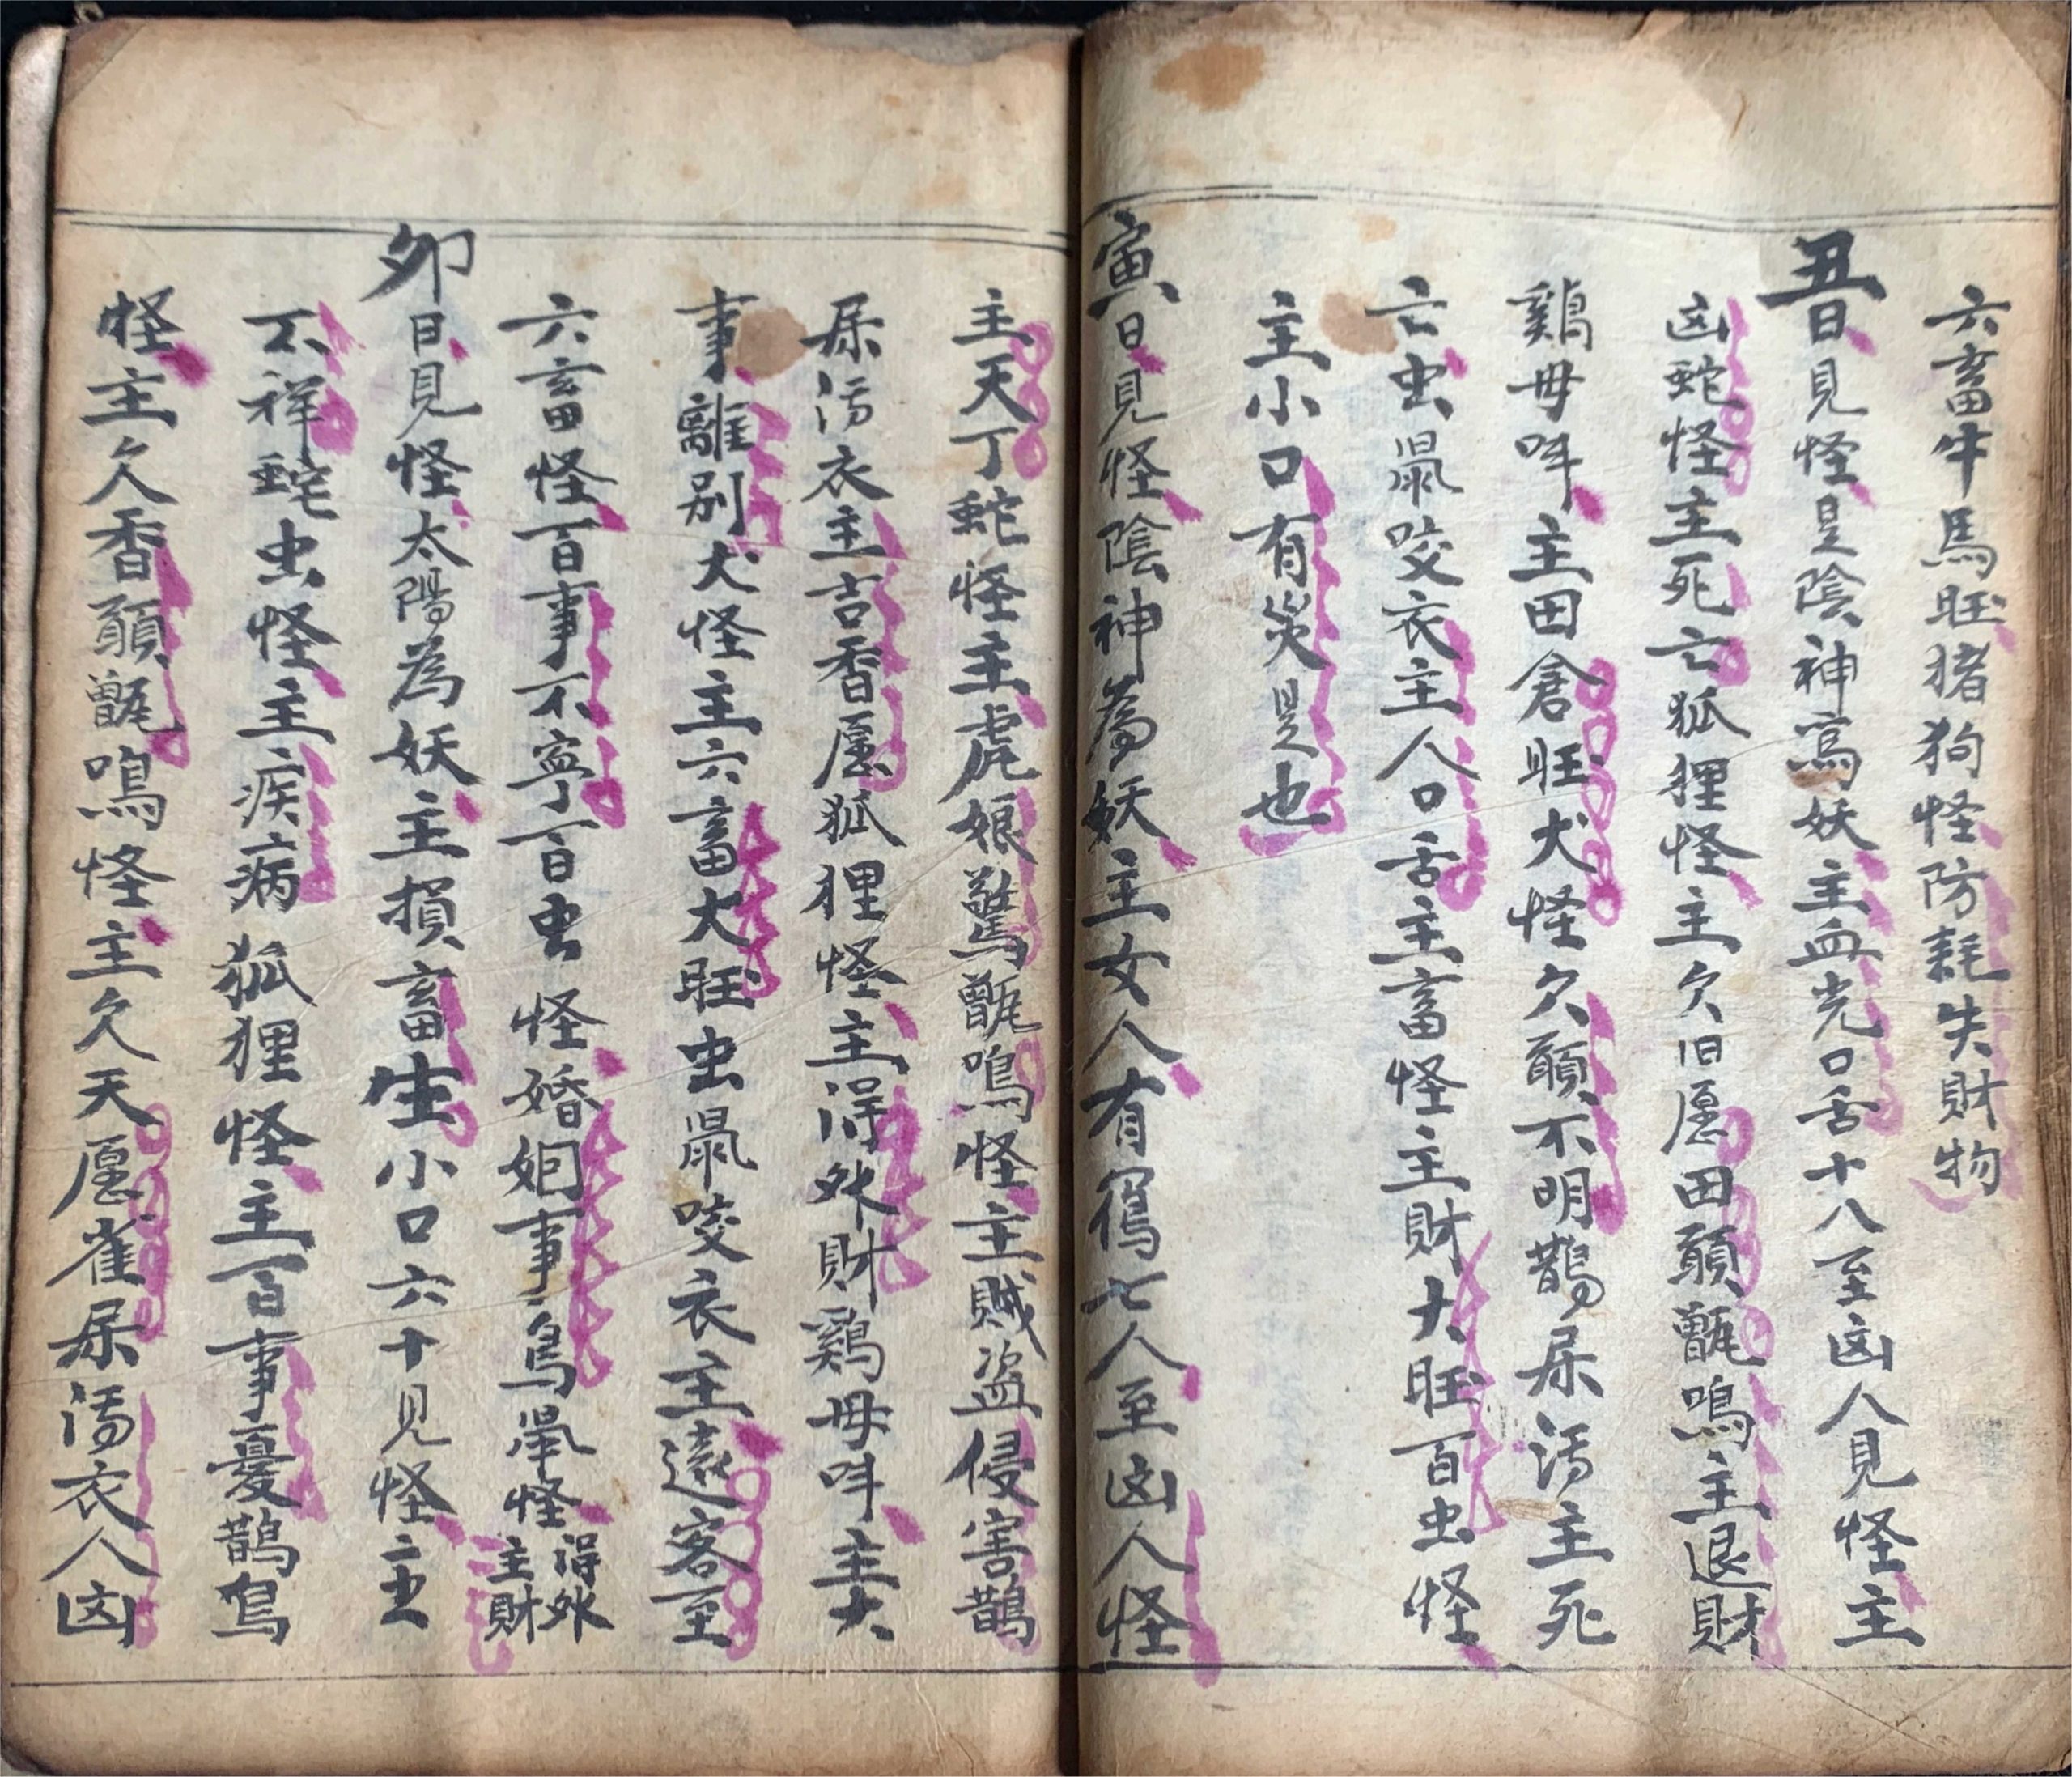 六畜牛馬旺猪狗怪防耗失財物
丑日見怪是陰神為妖主血光口舌十八至凶人見怪主
凶蛇怪主死亡狐狸怪主欠旧愿田願甑鳴主退財
鷄母呌主田倉旺犬怪欠願不明鵲屎污主死
亡虫鼠咬衣主人口舌主畜怪主財大旺百虫怪
主小口有災是也
寅日見怪陰神為妖主女人有寃七人至凶人怪
主天丁蛇怪主虎娘驚甑鳴怪主賊盗侵害鵲
屎污衣主吉香愿狐狸怪主得外財鷄母呌主大
事離别犬怪主六畜大旺虫鼠咬衣主遠客至
六畜怪百事不寧百虫怪婚姻事鳥鼠怪得外主財
卯日見怪太陽為妖主損畜生小口六十見怪主
不祥蛇虫怪主疾病狐狸怪主百事憂鵲鳥
怪主欠香願甑鳴怪主欠天愿雀屎污衣人凶